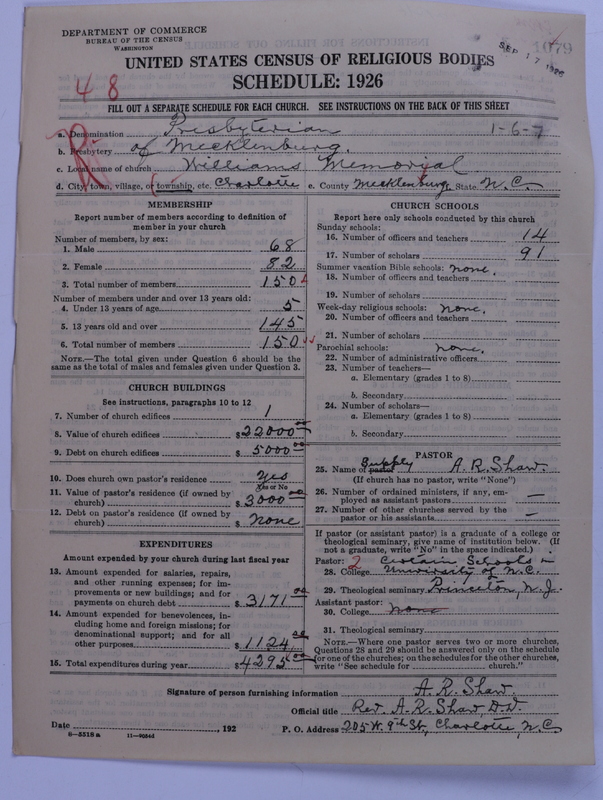 DEPARTMENT OF COMMERCE
BUREAU OF THE CENSUS
WASHINGTON
1079
SEP 17 1926
UNITED STATES CENSUS OF RELIGIOUS BODIES
SCHEDULE: 1926
4 8
FILL OUT A SEPARATE SCHEDULE FOR EACH CHURCH. SEE INSTRUCTIONS ON THE BACK OF THIS SHEET
a. Denomination Presbyterian 1-6-7
b. Presbytery of Mecklenburg.
c. Local name of church Williams Memorial
d. City, town, village, or township, etc. Charlotte e. County Mecklenburg State N.C.
MEMBERSHIP
Report number of members according to definition of member in your church
Number of members, by sex:
1. Male 68
2. Female 82
3. Total number of members 150
Number of members under and over 13 years old:
4. Under 13 years of age 5
5. 13 years old and over 145
6. Total number of members 150
NOTE.—The total given under Question 6 should be the same as the total of males and females given under Question 3.
CHURCH BUILDINGS
See instructions, paragraphs 10 to 12
7. Number of church edifices 1
8. Value of church edifices $22000.00
9. Debt on church edifices $5000.00
10. Does church own pastor's residence Yes
Yes or No
11. Value of pastor's residence (if owned by church) $3000.00
12. Debt on pastor's residence (if owned by church) $none
EXPENDITURES
Amount expended by your church during last fiscal year
13. Amount expended for salaries, repairs, and other running expenses; for improvements or new buildings; and for payments on church debt $3171.00
14. Amount expended for benevolences, including home and foreign missions; for denominational support; and for all other purposes $1124.00
15. Total expenditures during year $4295.00
CHURCH SCHOOLS
Report here only schools conducted by this church
Sunday schools:
16. Number of officers and teachers 14
17. Number of scholars 91
Summer vacation Bible schools: none.
18. Number of officers and teachers
19. Number of scholars
Week-day religious schools: none.
20. Number of officers and teachers
21. Number of scholars
Parochial schools: none.
22. Number of administrative officers
23. Number of teachers—
a. Elementary (grades 1 to 8)
b. Secondary
24. Number of scholars—
a. Elementary (grades 1 to 8)
b. Secondary
PASTOR
25. Name of pastor Supply A. R. Shaw.
(If church has no pastor, write "None")
26. Number of ordained ministers, if any, employed as assistant pastors —
27. Number of other churches served by the pastor or his assistants —
If pastor (or assistant pastor) is a graduate of a college or theological seminary, give name of institution below. (If not a graduate, write "No" in the space indicated.)
Pastor: 2 Schools
28. College University of N.C.
29. Theological seminary Princeton, N.J.
Assistant pastor:
30. College none
31. Theological seminary
NOTE.—Where one pastor serves two or more churches, Questions 28 and 29 should be answered only on the schedule for one of the churches; on the schedules for the other churches, write "See schedule for church."
Signature of person furnishing information A. R. Shaw.
Official title Rev. A. R. Shaw, D.D.
Date , 192 P. O. Address 205 W. 9th St, Charlotte, N.C.
8-5518a 11-9054d